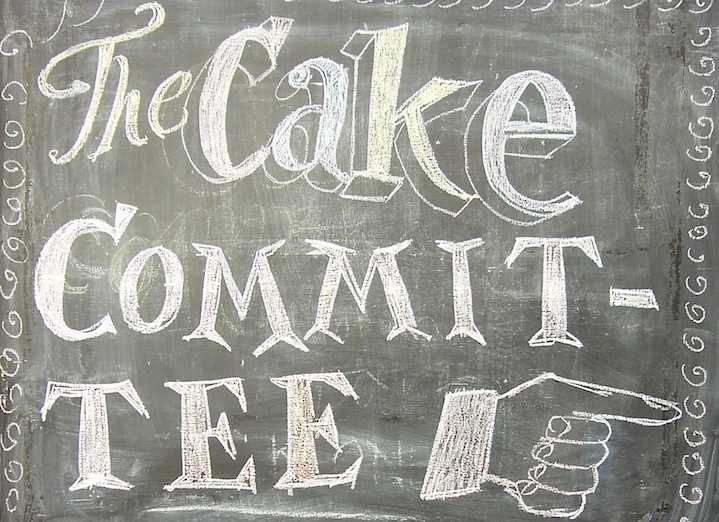 The Cake
COMMIT-
TEE